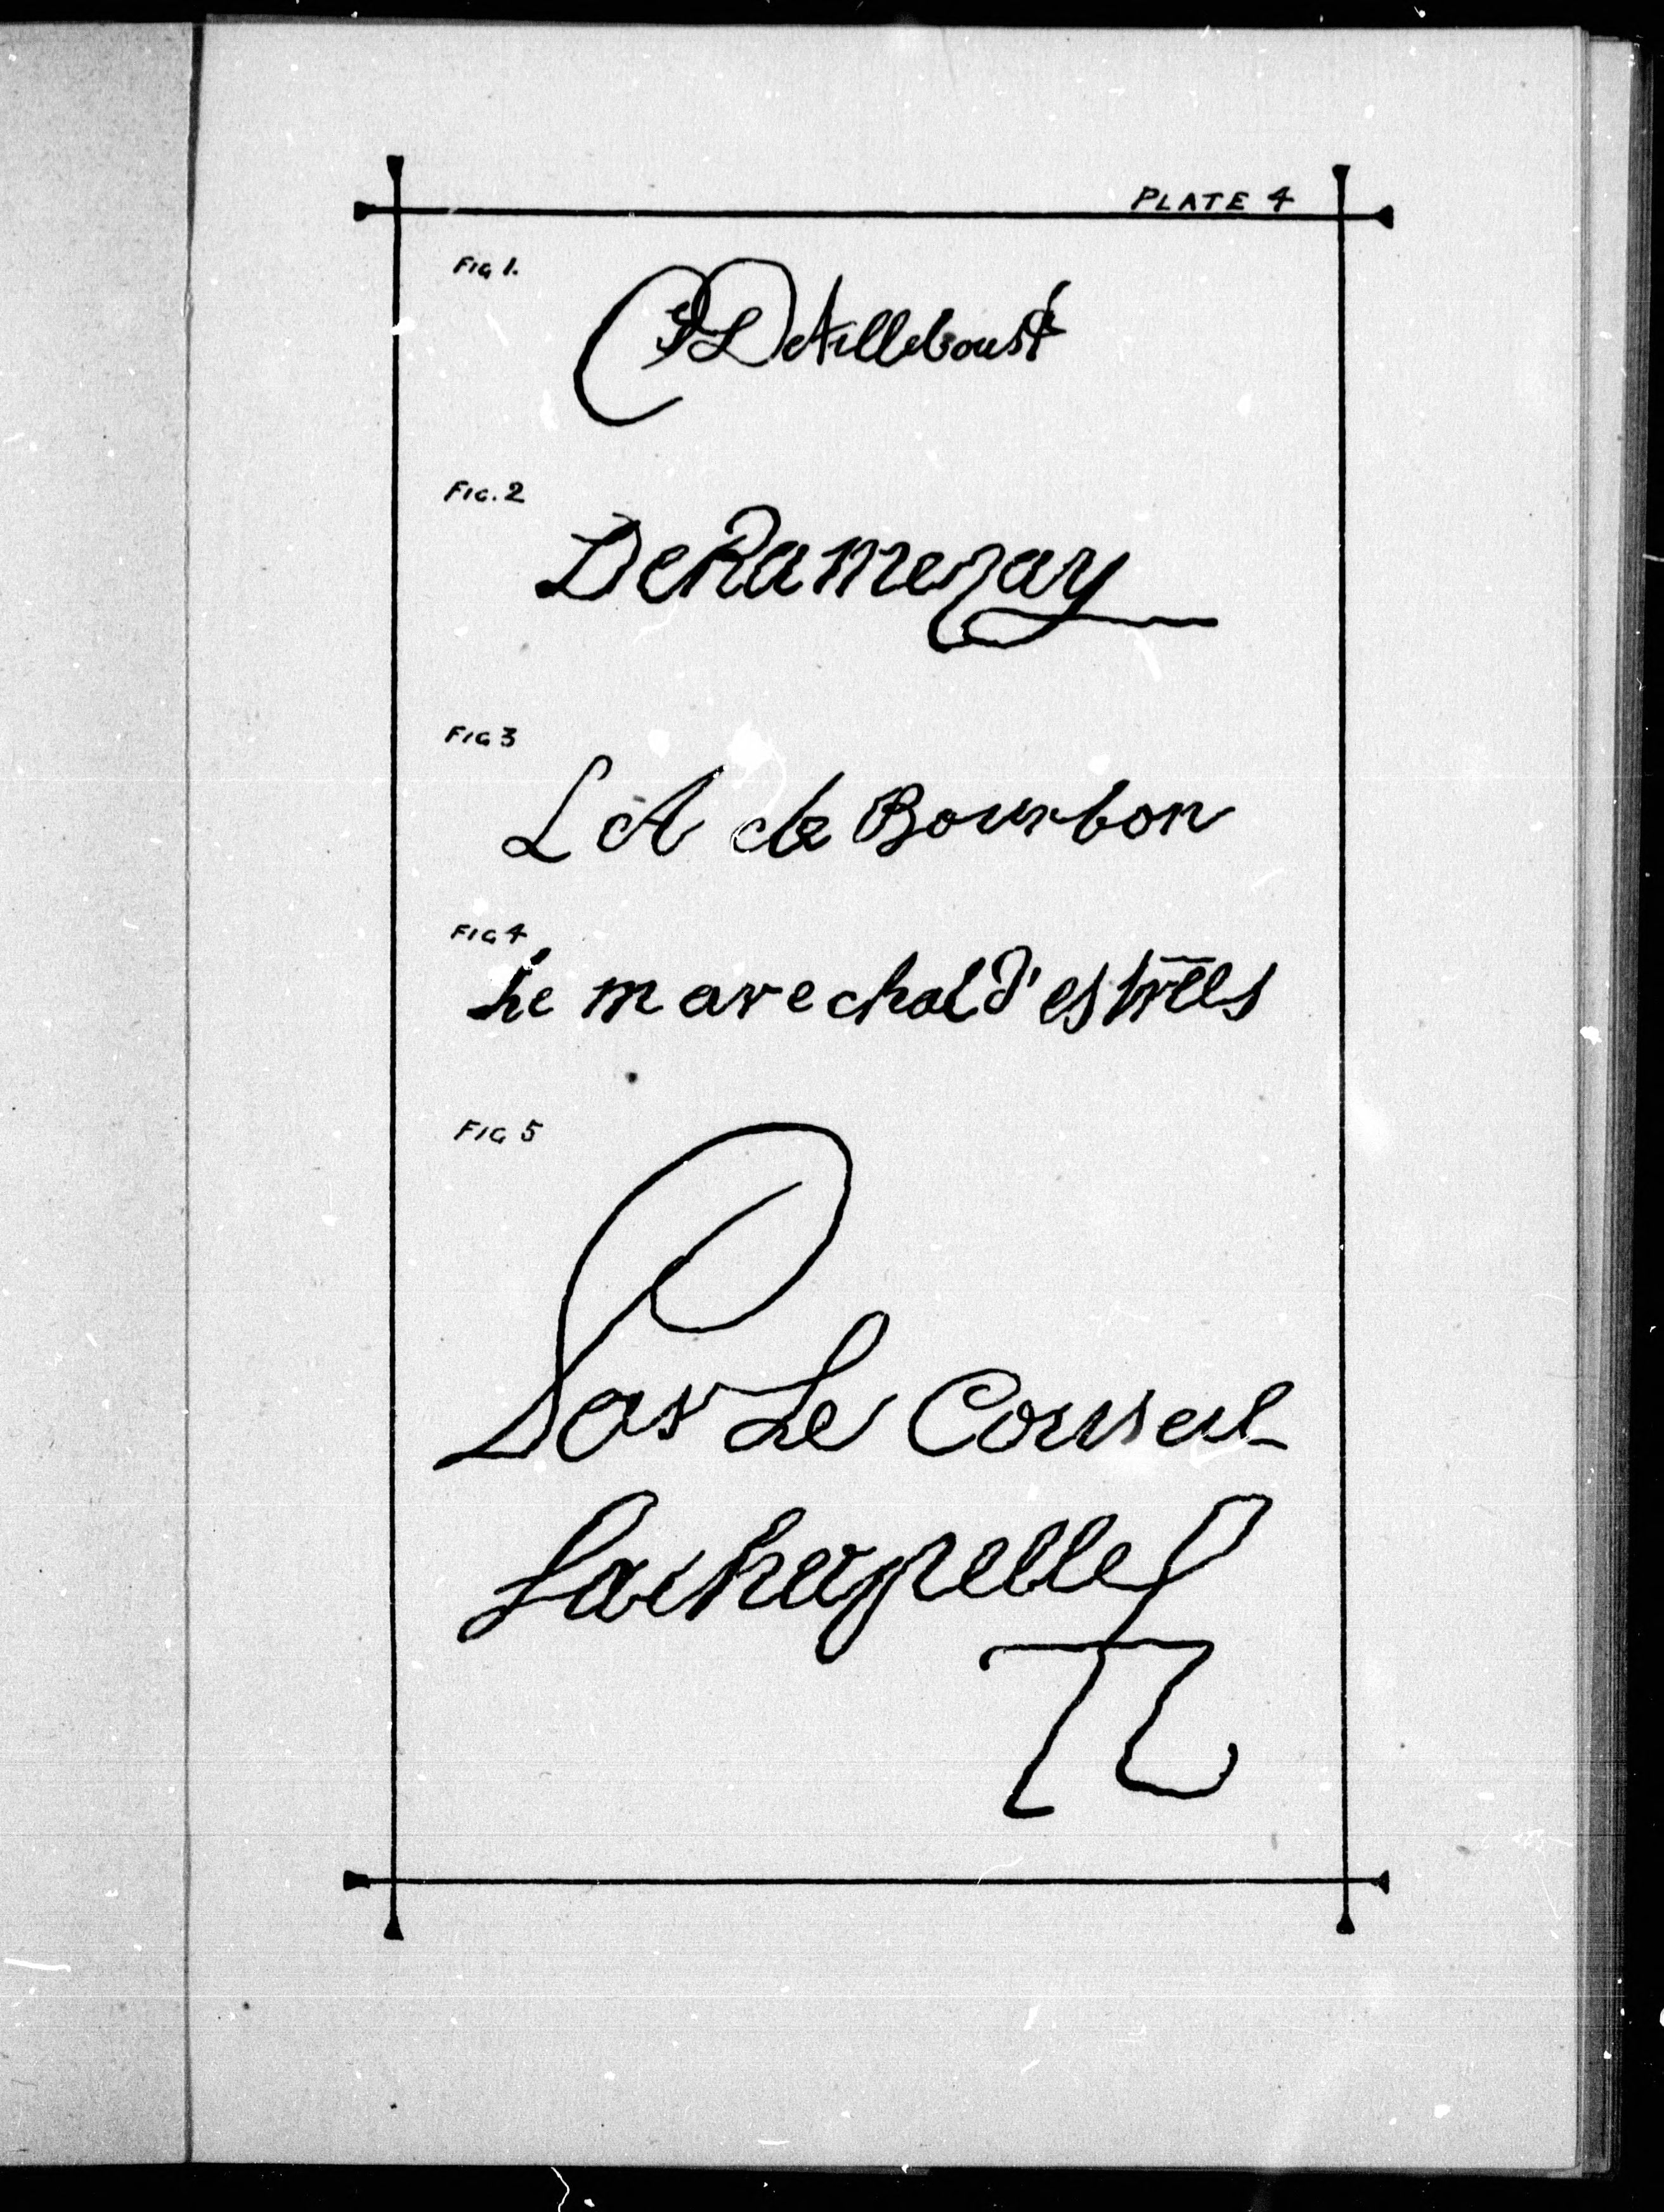 PLATE 4
FIG 1.
Dailleboust
FIG. 2
DeRamezay
FIG 3
L A de Bourbon
FIG 4
Le marechal d'estrées
FIG 5
Par Le Conseil
Lachapelle